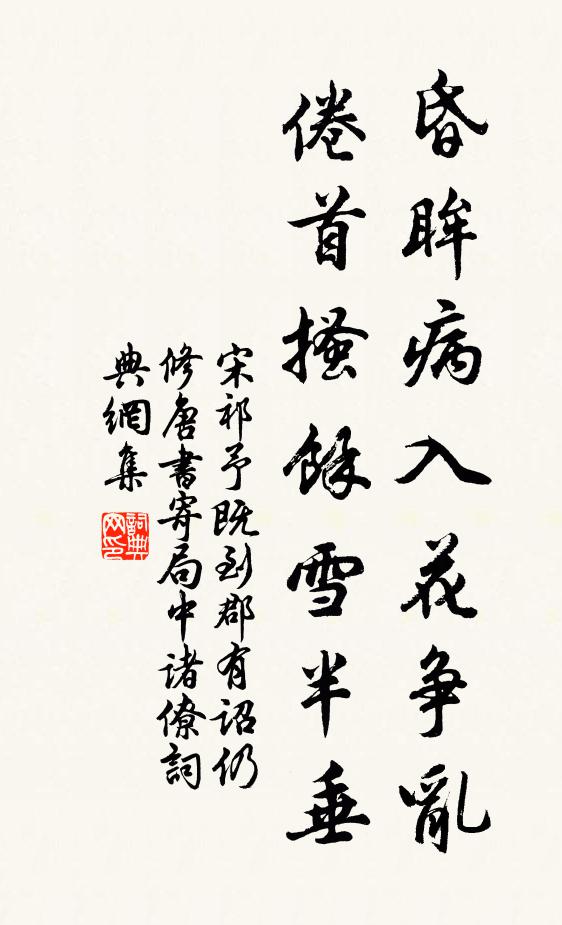 昏眸病入花争亂
倦首搔餘雪半垂
宋祁予既到郡有詔仍
修唐書寄局中诸僚詞
典網集
詞典网印